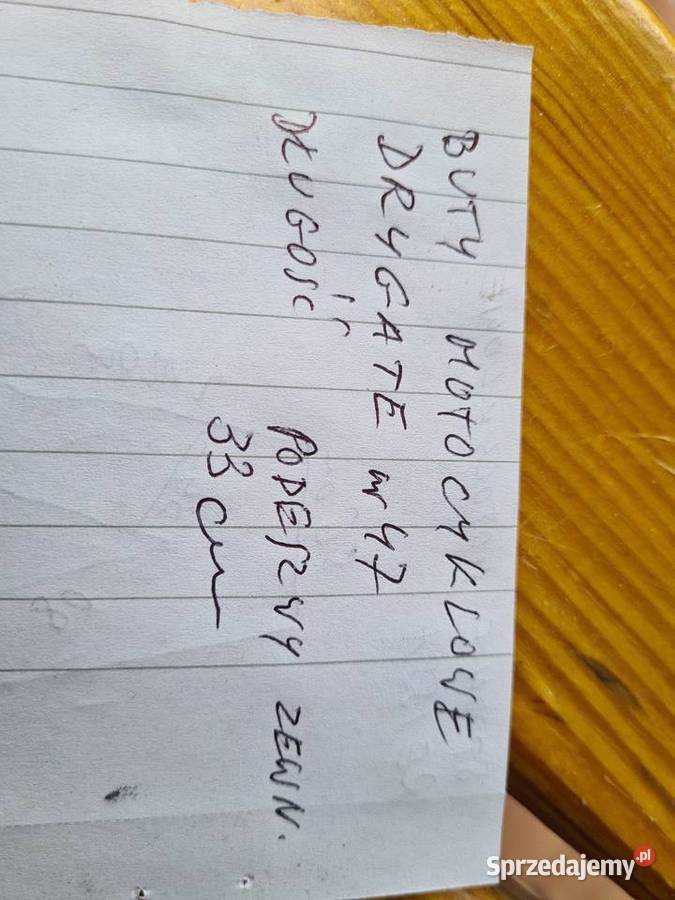 BUTY MOTOCYKLOWE
DRYGATE nr 47
DŁUGOŚĆ PODESZWY ZEWN.
33 cm
Sprzedajemy.pl